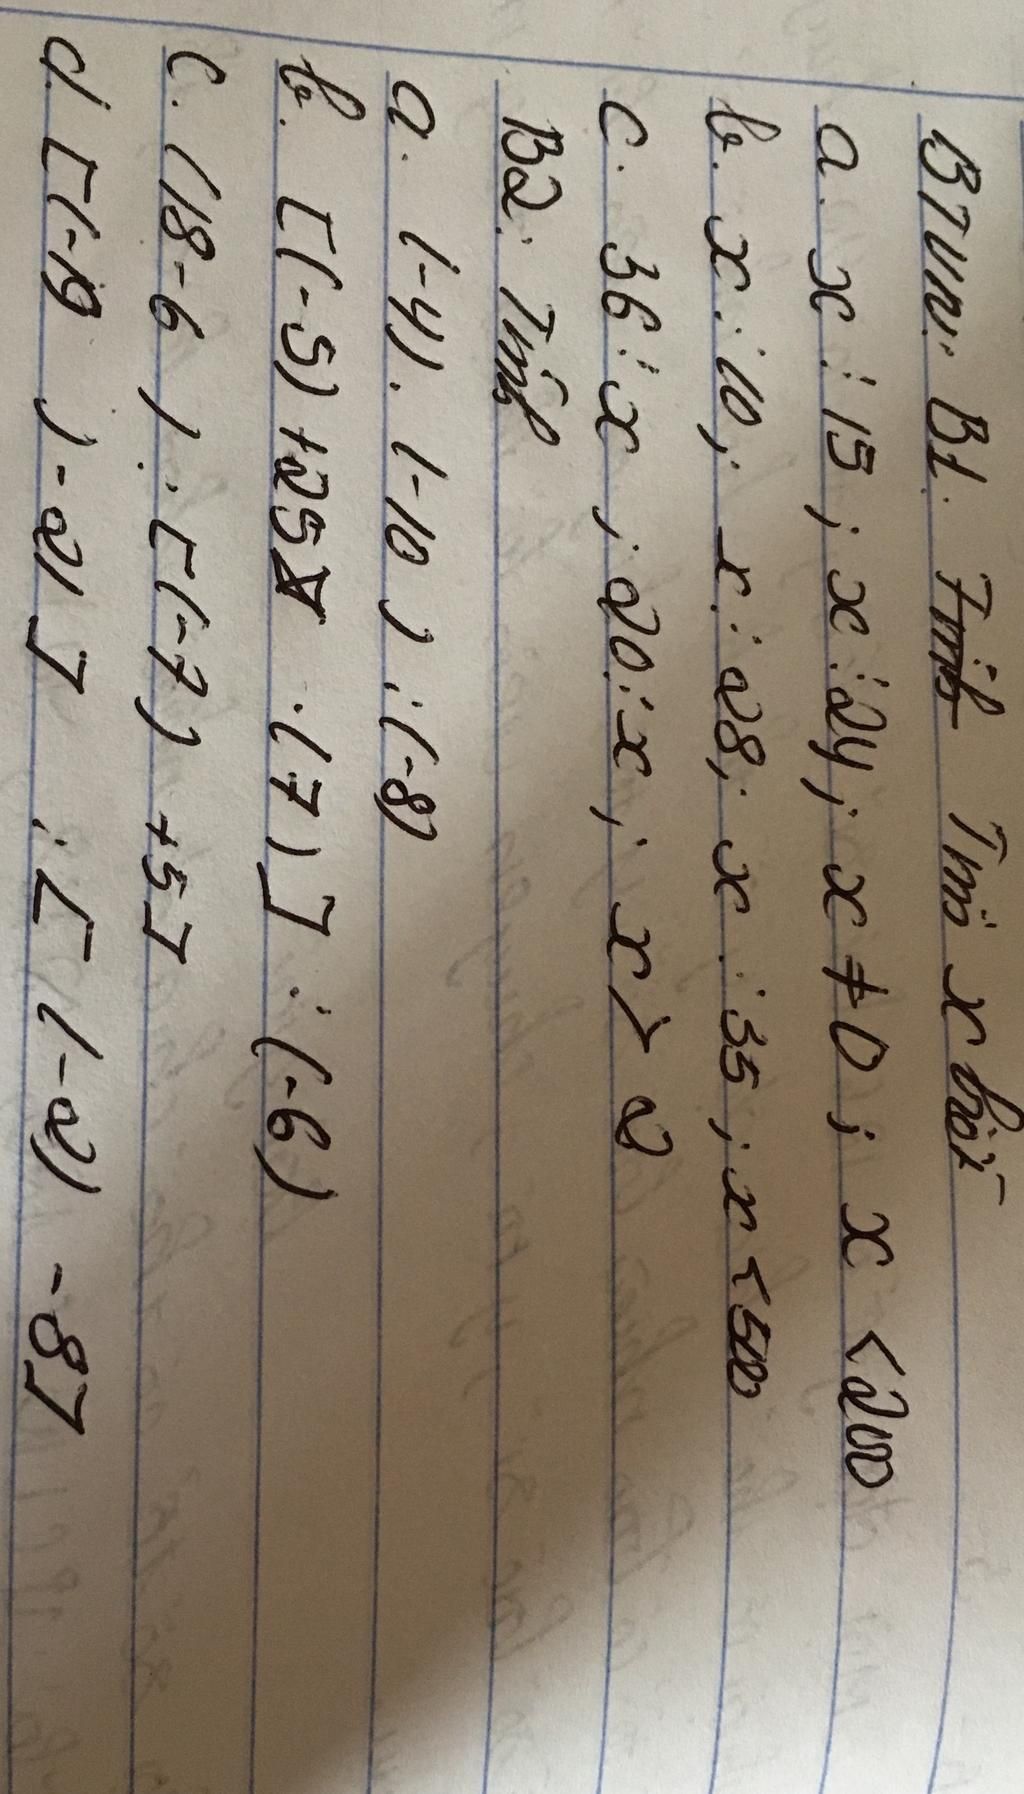 BTVN: B1. Tính Tìm x biết
a. x ⋮ 15 ; x ⋮ 24 ; x ≠ 0 ; x < 200
b. x ⋮ 10 ; x ⋮ 28 ; x ⋮ 35 ; x < 500
c. 36 ⋮ x ; 20 ⋮ x ; x > 2
B2: Tính
a. (-4). (-10) : (-8)
b. [(-5) +25 .(7)] : (-6)
c. (18-6) : [(-7) +5]
d. [(-19) -2)] : [(-2) -8]